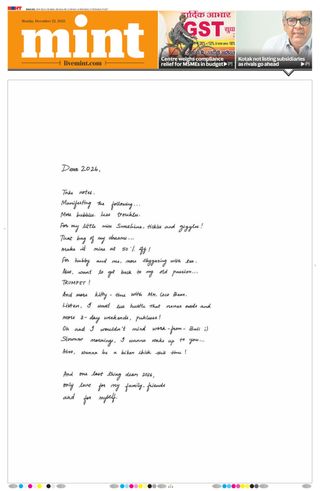 Monday, December 22, 2025
mint
livemint.com
GST
Centre weighs compliance
relief for MSMEs in budget ▶P1
Kotak not listing subsidiaries
as rivals go ahead ▶P1
Dear 2026,
Take notes.
Manifesting the following...
More bubbles, less troubles.
For my little miss Sunshine, tickles and giggles!
That bag of my dreams...
make it mine at 50% off!
For hubby and me, more staygazing with love.
Also, want to get back to my old passion...
TRUMPET!
And more kitty-time with Mr. Leo Bane.
Listen, I want less hustle that never ends and
more 3-day weekends, puhleez!
Oh and I wouldn't mind work-from-Bali :)
Slowmo mornings, I wanna wake up to you...
Also, wanna be a biker chick this time!
And one last thing dear 2026,
only love for my family, friends
and for myself.